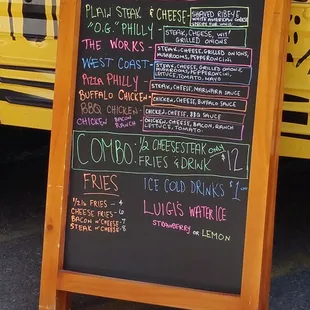 PLAIN STEAK & CHEESE- SHAVED RIBEYE
WHITE AMERICAN CHEESE
"O.G." PHILLY- STEAK, CHEESE, WIT/
GRILLED ONIONS
THE WORKS- STEAK, CHEESE, GRILLED ONIONS,
MUSHROOMS, PEPPERONCINI
WEST COAST- STEAK, CHEESE, GRILLED ONIONS
MUSHROOMS, PEPPERONCINI,
LETTUCE, TOMATO, MAYO
PIZZA PHILLY- STEAK, CHEESE, MARINARA SAUCE
BUFFALO CHICKEN- CHICKEN, CHEESE, BUFFALO SAUCE
BBQ CHICKEN- CHICKEN, CHEESE, BBQ SAUCE
CHICKEN BACON RANCH- CHICKEN, CHEESE, BACON, RANCH,
LETTUCE, TOMATO
COMBO: 1/2 CHEESESTEAK ONLY
FRIES & DRINK $12
FRIES
1/2 lb FRIES - 4
CHEESE FRIES - 6
BACON N' CHEESE - 7
STEAK N' CHEESE - 8
ICE COLD DRINKS $1.00
LUIGI'S WATER ICE
STRAWBERRY OR LEMON